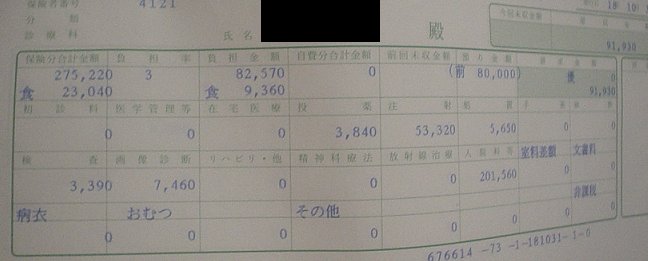 保険者番号 4121
分 類
診 療 科 氏 名 殿
18 10
今回未収金額
91,930
保険分合計金額 負 担 率 負 担 金 額 自費分合計金額 前回未収金額 預 り 金 額
275,220 3 82,570 0 (前 80,000) 優 0
食 23,040 食 9,360 91,930
初 診 料 医学管理等 在宅医療 投 薬 注 射 処 置 手 術
0 0 0 3,840 53,320 5,650 0 0
検 査 画像診断 リハビリ・他 精神科療法 放射線治療 入院料等 室料差額 文書料
3,390 7,460 0 0 0 201,560 0 0
病衣 おむつ その他 非課税
0 0 0 0 0 0 0 0
676614 -73 -1-181031- 1-0